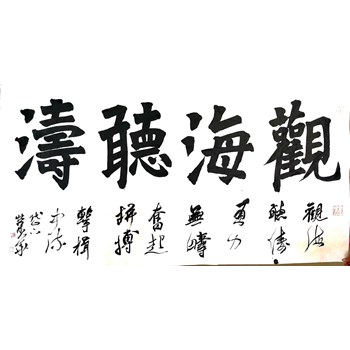 觀海聽濤
觀海
聽濤
勇力
無疇
奮起
拼搏
擊楫
中流